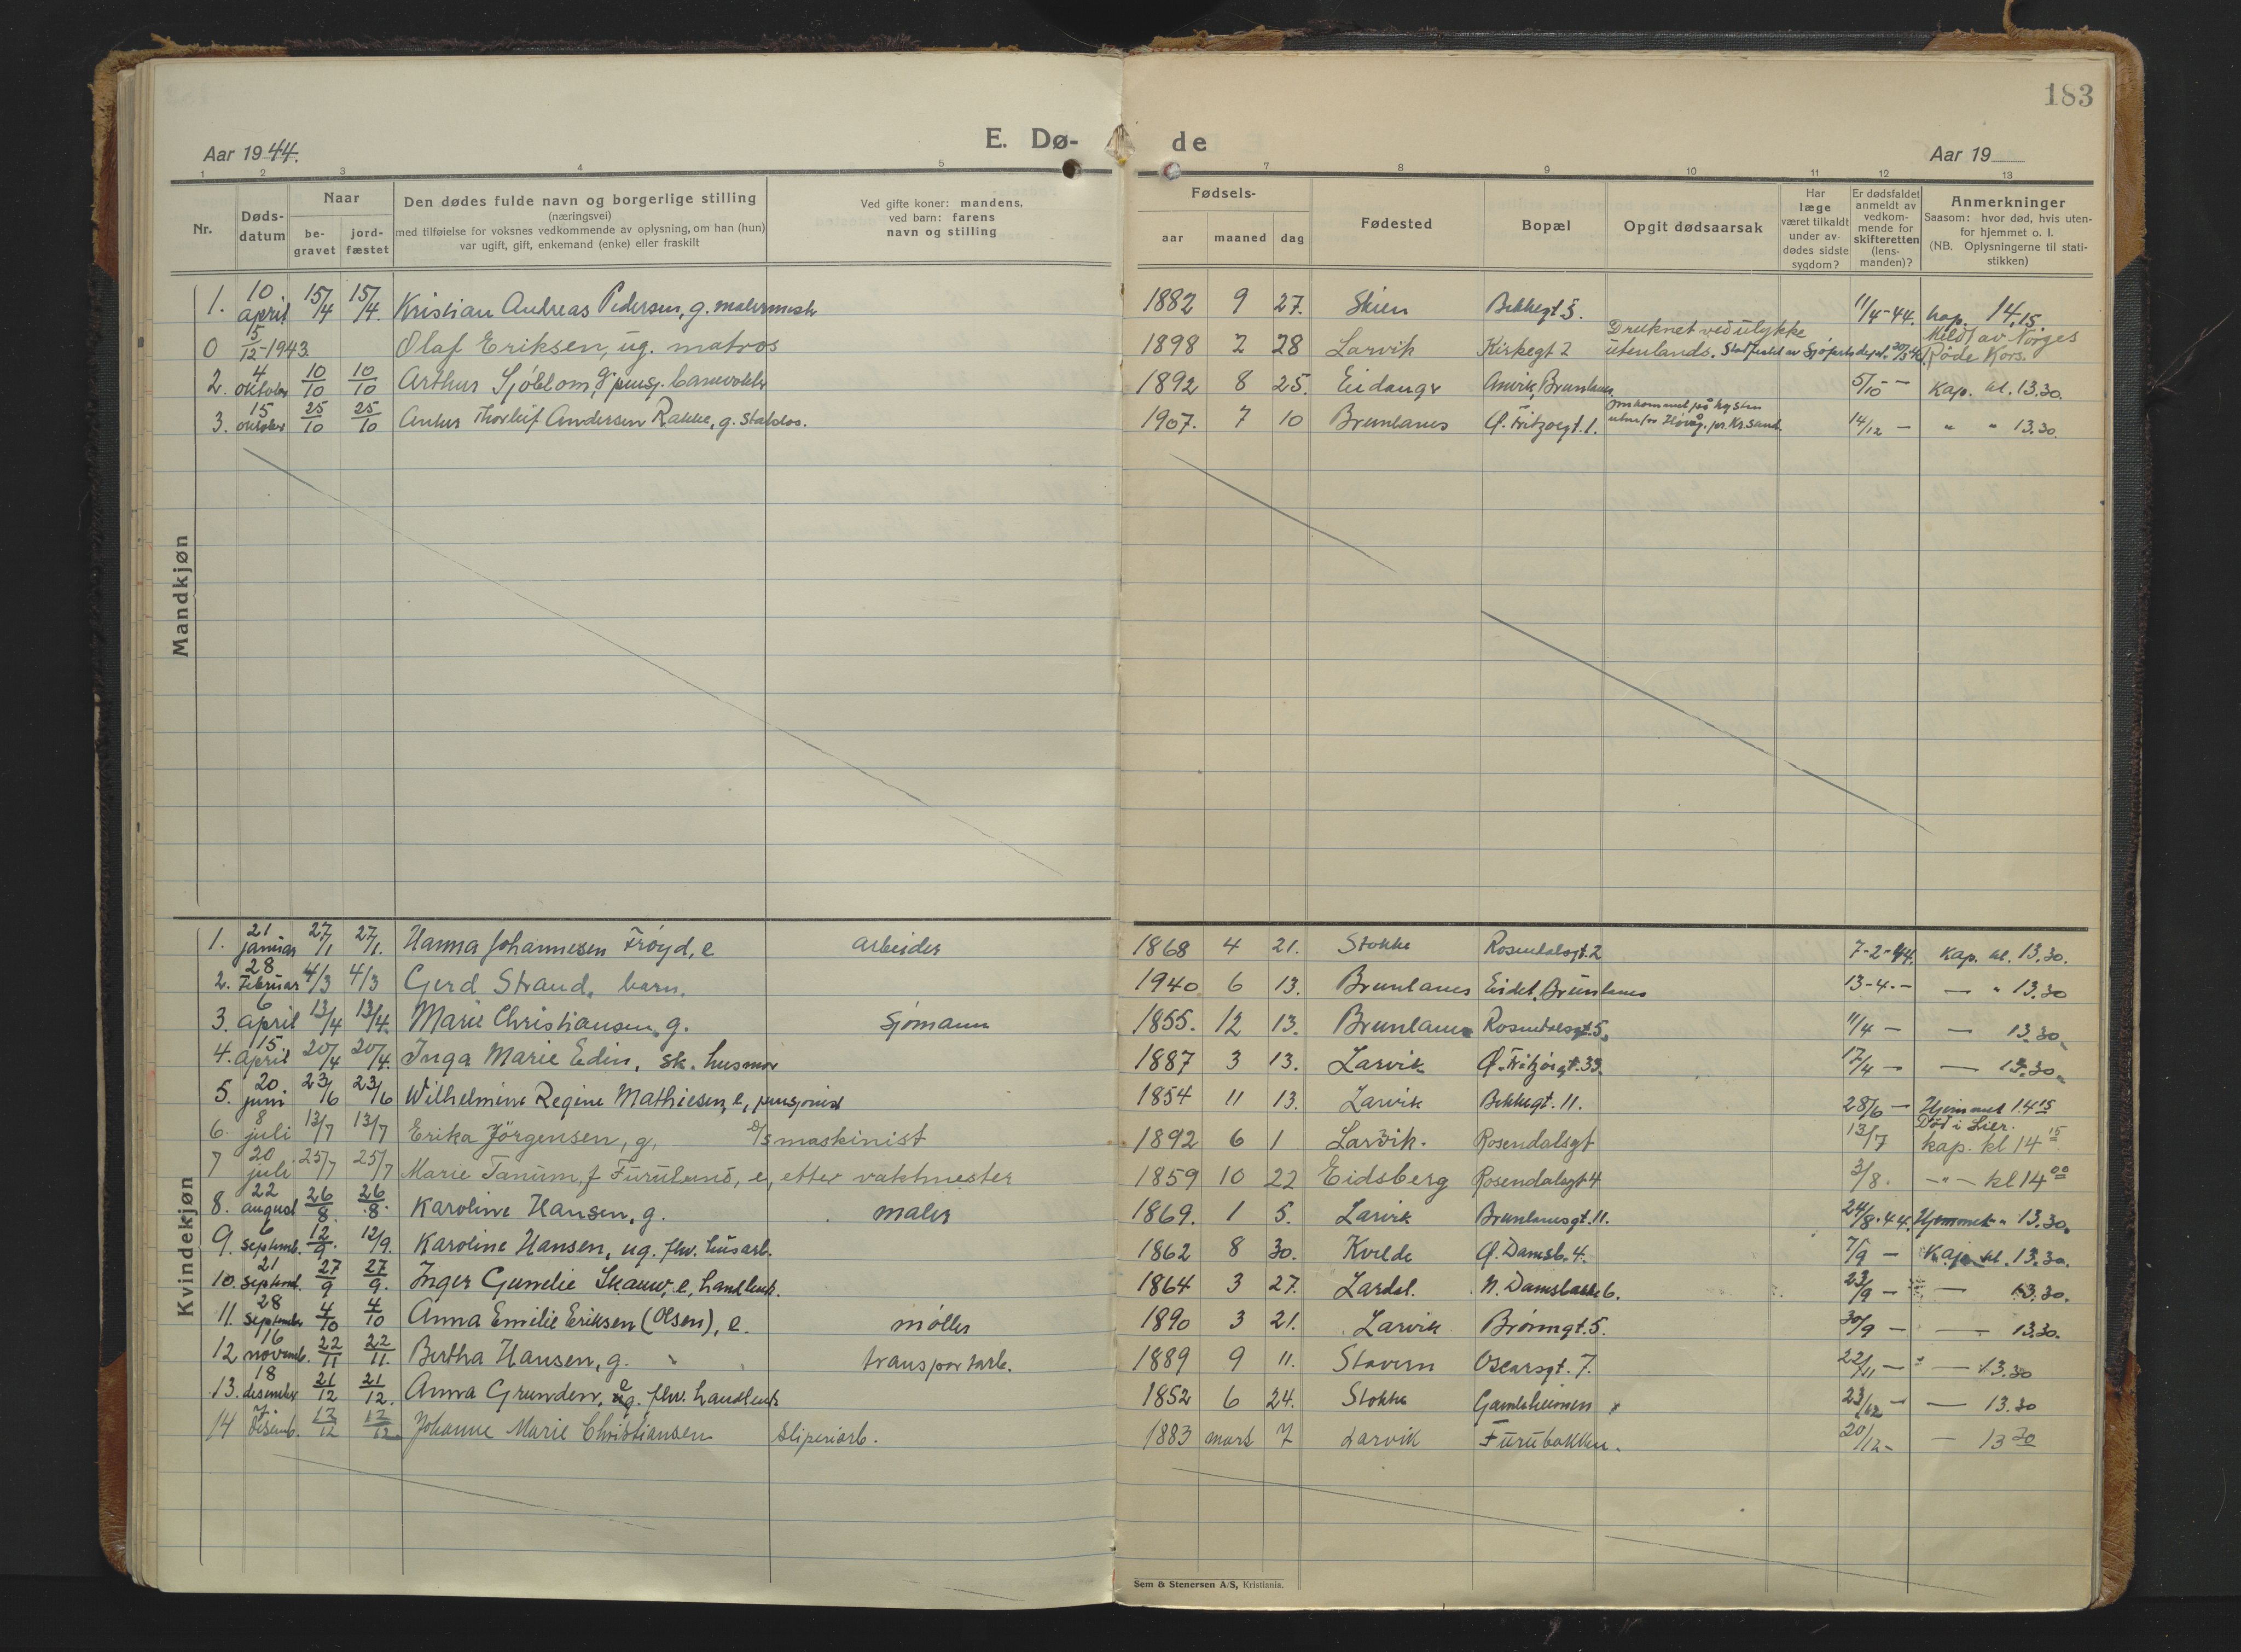 183
E. Dø- de
Aar 1944. Aar 19
1 2 3 4 5 7 8 9 10 11 12 13
Nr. Døds-datum Naar be-gravet jord-fæstet Den dødes fulde navn og borgerlige stilling (næringsvei) med tilføielse for voksnes vedkommende av oplysning, om han (hun) var ugift, gift, enkemand (enke) eller fraskilt Ved gifte koner: mandens, ved barn: farens navn og stilling Fødsels- aar maaned dag Fødested Bopæl Opgit dødsaarsak Har læge været tilkaldt under av-dødes sidste sygdom? Er dødsfaldet anmeldt av vedkom-mende for skifteretten (lens-manden)? Anmerkninger Saasom: hvor død, hvis uten-for hjemmet o. l. (NB. Oplysningerne til stati-stikken)
Mandkjøn
1. 10 april 15/4 15/4. Kristian Andreas Pedersen, g. malermestr 1882 9 27. Skien Bekkegt 5. 11/4-44. kap. 14,15.
0 15/12-1943. Olaf Eriksen, ug. matros 1898 2 28 Larvik Kirkegt 2 Druknet ved ulykke utenlands. Stadfestet av Sjøfartsdept. Meldt av Norges Røde Kors.
2. 4 oktober 10/10 10/10 Arthur Sjöblom, g. pensj. banevokter 1892 8 25. Eidangr Anvik, Brunlanes 5/10 - Kap. kl. 13.30.
3. 15 oktober 25/10 25/10 Thorleif Andersen Rakke, g. Statslos. 1907. 7 10 Brunlanes Ø. Fritzøegt. 1. omkommet på kysten utenfor Høvåg, pr. Kr.sand. 14/12 - " " 13.30.
Kvindekjøn
1. 21 januar 27/1 27/1. Hanna Johannesen Frøyd, e arbeider 1868 4 21. Stokke Rosendalsgt. 2 7-2-44. Kap. kl. 13.30.
2. 28 Februar 4/3 4/3 Gerd Strand, barn. 1940 6 13. Brunlanes Eidet, Brunlanes 13-4.- — " 13.30
3. 6 april 13/4 13/4. Marie Christiansen, g. Sjømann 1855. 12 13. Brunlanes Rosendalsgt. 5. 11/4 - — 13.30.
4. 15 april 20/4 20/4. Inga Marie Edin, sk. husmor 1887 3 13. Larvik Ø. Fritzøegt. 33. 17/4 - — 13.30.
5. 20. juni 23/6 23/6 Wilhelmine Regine Mathiesen, e, pensjonist 1854 11 13. Larvik Bekkegt. 11. 28/6 - Hjemmet 14 15
6. 8 juli 13/7 13/7 Erika Jörgensen, g, D/S maskinist 1892 6 1 Larvik. Rosendalsgt 13/7 Död i Lier. kap. kl 14 15
7 20 juli 25/7 25/7 Marie Tanum, f Furulund, e, etter vaktmester 1859 10 22 Eidsberg Rosendalsgt 4 3/8. -"- kl 14 00
8. 22 august 26/8. 26/8. Karoline Hansen, g. maler 1869. 1 5. Larvik Brunlanesgt. 11. 24/8.44. Hjemmet " 13.30.
9. 6 septemb. 12/9. 12/9. Karoline Hansen, ug. fhv. husarb. 1862 8 30. Kvelde Ø. Damsb. 4. 7/9 - Kap. kl. 13.30.
10. 21 septemb. 27/9 27/9. Inger Gunelie Skauw, e, handlende. 1864 3 27. Lardal. N. Damsbakke 6. 23/9 - — 13.30.
11. 28 september 4/10 4/10 Anna Emilie Eriksen (Olsen), e. møller 1890 3 21. Larvik Brönngt. 5. 30/9 - — 13.30.
12 16 novemb. 22/11 22/11. Bertha Hansen, g. transportarb. 1889 9 11. Stavern Oscarsgt. 7. 22/11 - — 13.30
13. 18 desember 21/12 21/12. Anna Grunden, ug. e fhv. handlende 1852 6 24. Stokke Gamleheimen 23/12 - — 13.30
14 7. desemb. 12/12 12/12. Johanne Marie Christiansen Sliperiarb. 1883 mars 7 Larvik Furubakken. 20/12- — 13 30
Sem & Stenersen A/S, Kristiania.